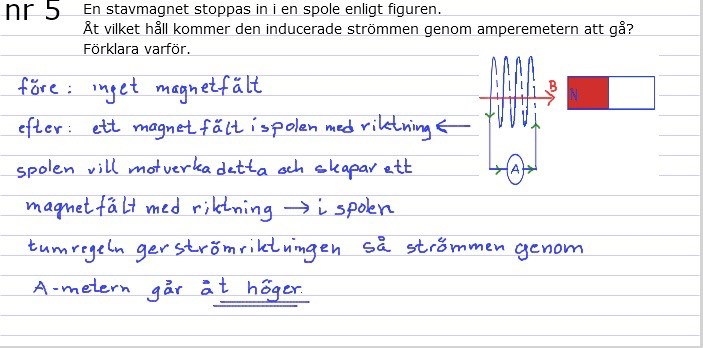 nr 5
En stavmagnet stoppas in i en spole enligt figuren.
Åt vilket håll kommer den inducerade strömmen genom amperemetern att gå?
Förklara varför.
före: inget magnetfält
efter: ett magnetfält i spolen med riktning ←
spolen vill motverka detta och skapar ett
magnetfält med riktning → i spolen
tumregeln ger strömriktningen så strömmen genom
A-metern går åt höger.
B
N
A